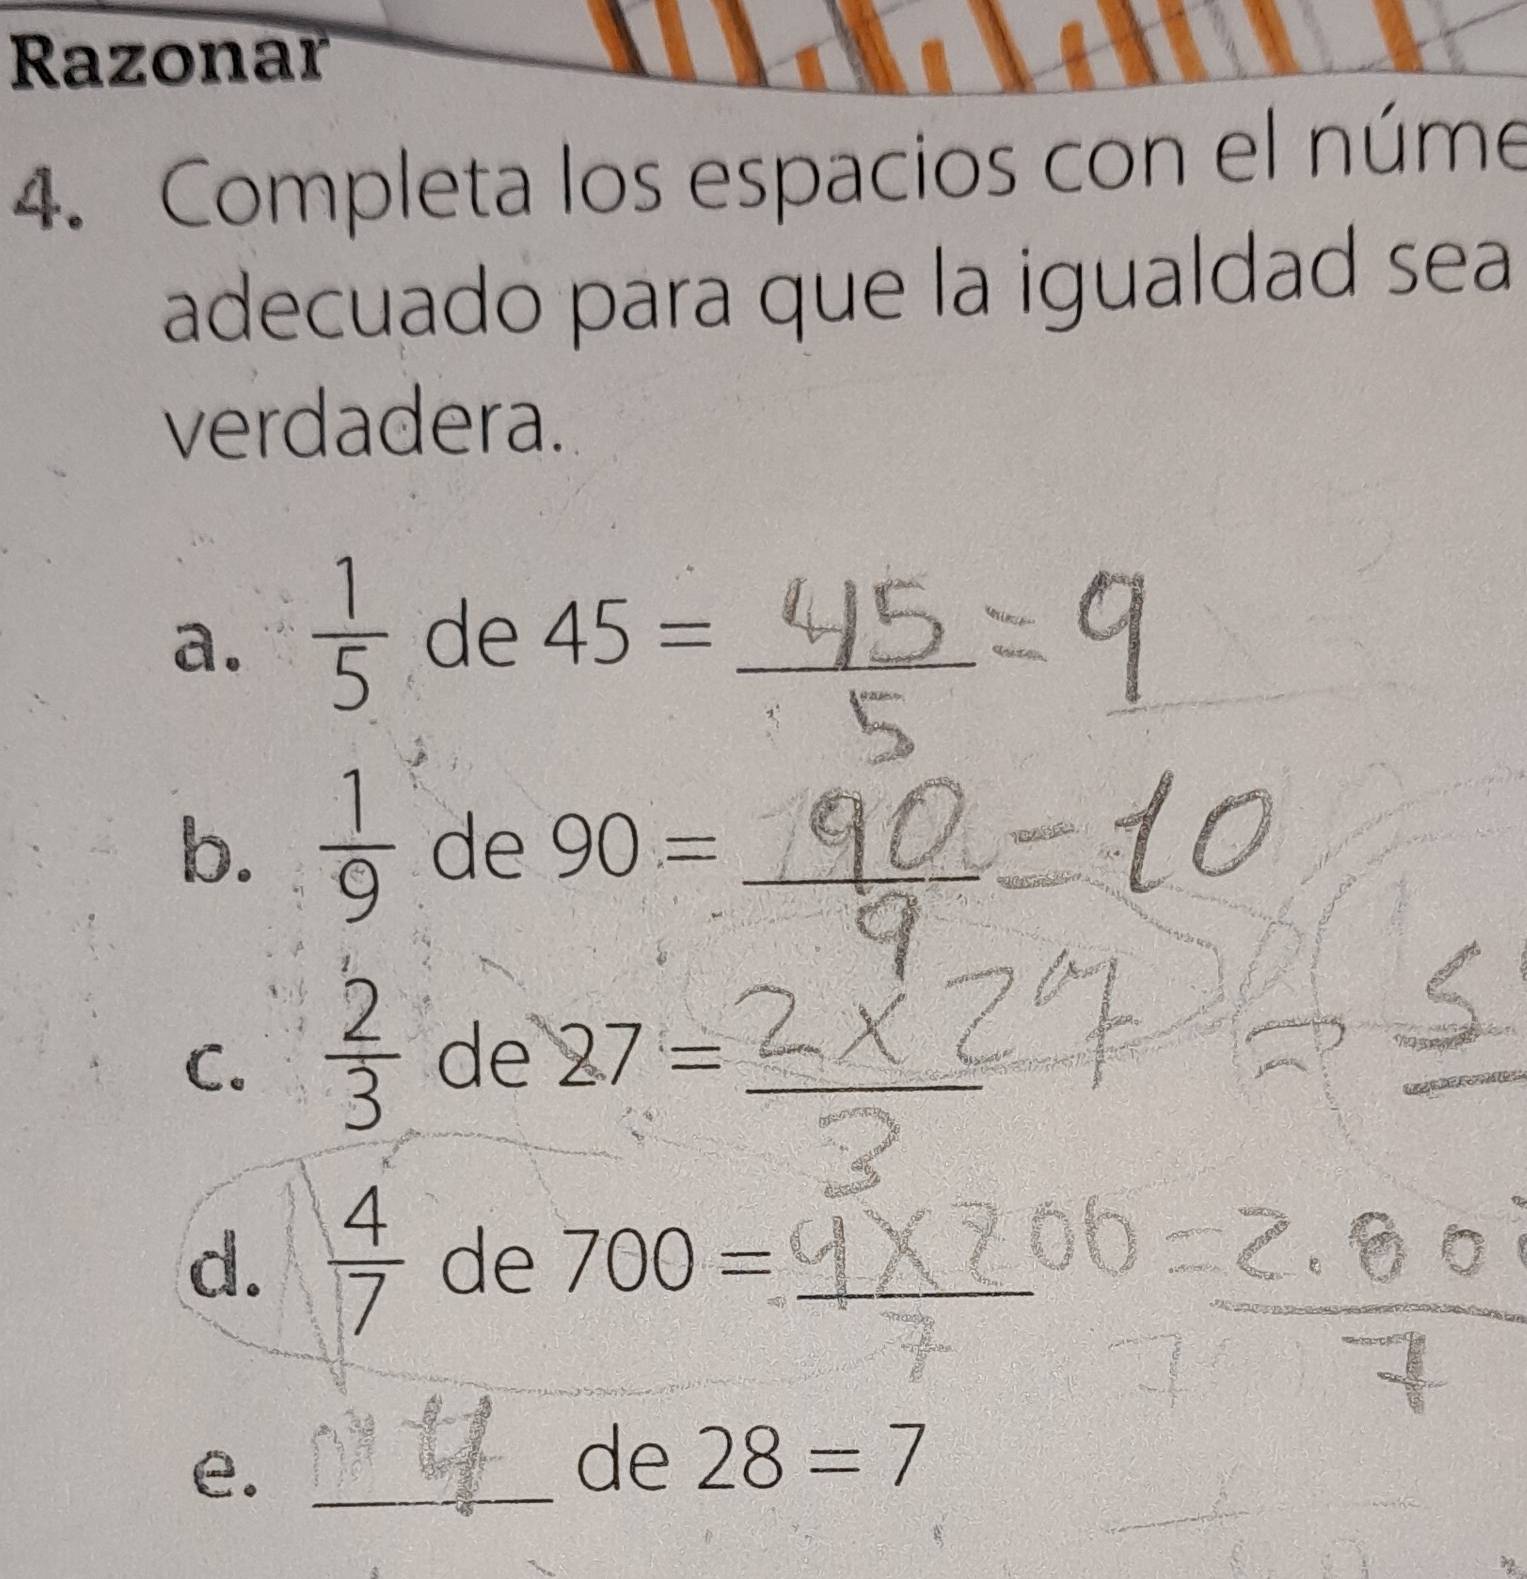 Razonar
4. Completa los espacios con el núme
adecuado para que la igualdad sea
verdadera.
a. 1/5 de 45 = 45/5 = 9
b. 1/9 de 90 = 90/9 = 10
c. 2/3 de 27 = 2 x 27/3 = 5
d. 4/7 de 700 = 4 x 700/7 = 2.80/7
e. 4 de 28 = 7